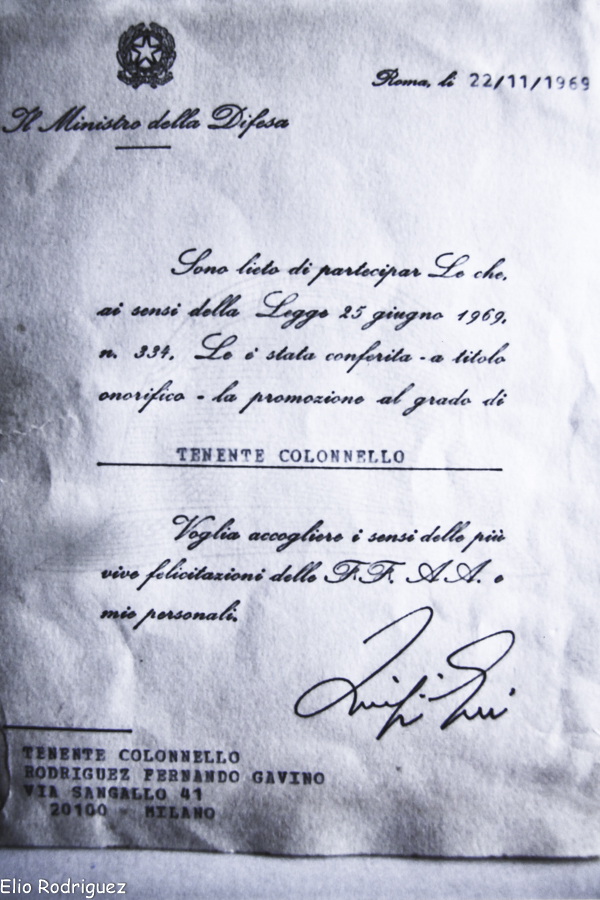 Roma, li 22/11/1969
Il Ministro della Difesa
Sono lieto di partecipar Le che,
ai sensi della Legge 25 giugno 1969,
n. 334, Le è stata conferita - a titolo
onorifico - la promozione al grado di
TENENTE COLONNELLO
Voglia accogliere i sensi delle più
vive felicitazioni delle F.F. A.A. e
mie personali.
Luigi Gui
TENENTE COLONNELLO
RODRIGUEZ FERNANDO GAVINO
VIA SANGALLO 41
20100 - MILANO
Elio Rodriguez